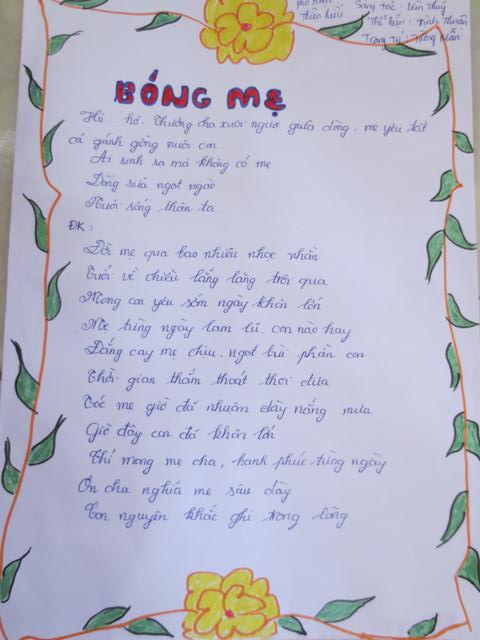 Sáng tác: Văn Thuý
Thể hiện: Đình Thuân
Trang trí: Hồng Mận
BÓNG MẸ
Hò... hó. Thương cha xuôi ngược giữa dòng, mẹ yêu tất
cả gánh gồng nuôi con
Ai sinh ra mà không có mẹ
Dòng sữa ngọt ngào
Nuôi sống thân ta
ĐK:
Đời mẹ qua bao nhiêu nhọc nhằn
Tuổi về chiều lẳng lặng trôi qua
Mong con yêu sớm ngày khôn lớn
Mẹ từng ngày lam lũ, con nào hay
Đắng cay mẹ chịu, ngọt bùi phần con
Thời gian thấm thoát thoi đưa
Tóc mẹ giờ đã nhuộm dày nắng mưa
Giờ đây con đã khôn lớn
Chỉ mong mẹ cha, hạnh phúc từng ngày
Ơn cha nghĩa mẹ sâu dày
Con nguyện khắc ghi trong lòng